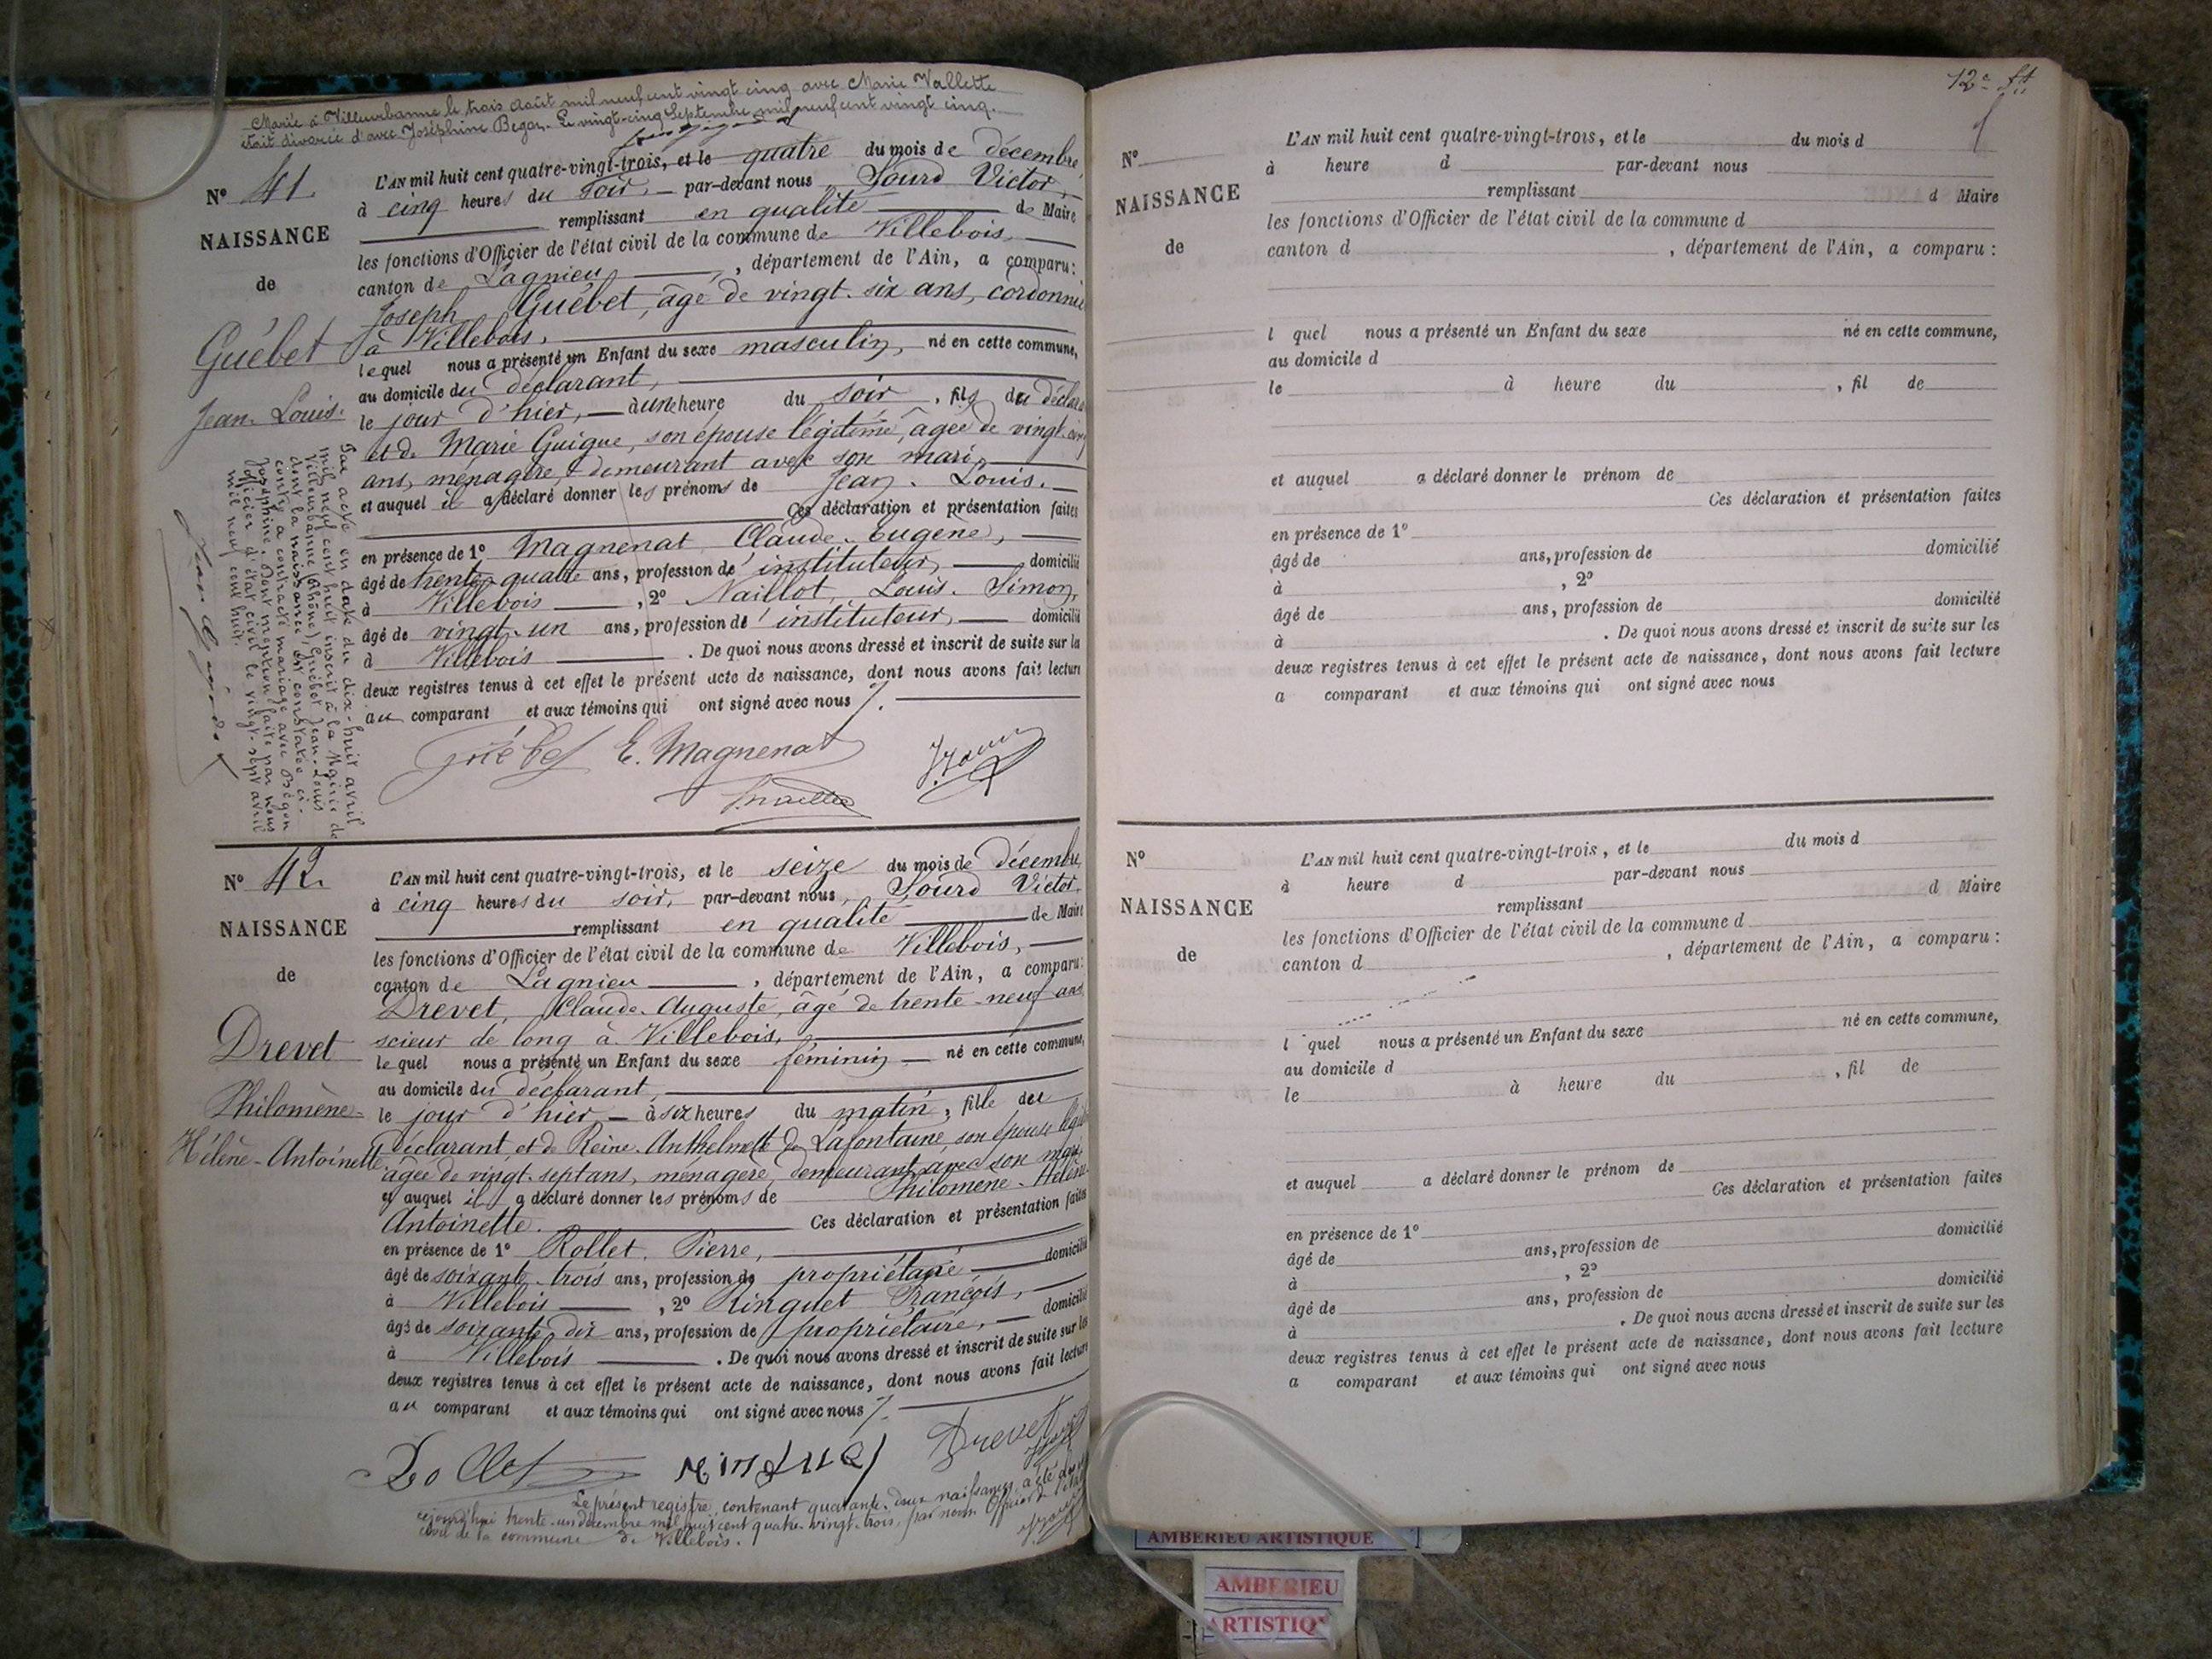 Marié à Villeurbanne le trois Août mil neuf cent vingt cinq avec Marie Vallette
était divorcé d'avec Joséphine Begon. Le vingt-cinq Septembre mil neuf cent vingt cinq.
N° 41.
NAISSANCE
de
Guébet
Jean-Louis.
Par acte en date du dix-huit avril
mil neuf cent huit inscrit à la Mairie de
Villeurbanne (Rhône) Guébet Jean-Louis
dont la naissance est constatée ci-
contre a contracté mariage avec Bégon
Joséphine. Dont mention faite par Nous
officier d'état civil le vingt-sept avril
mil neuf cent huit.
L'AN mil huit cent quatre-vingt-trois, et le quatre du mois de décembre,
à cinq heures du soir, par-devant nous Sourd Victor,
remplissant en qualité de Maire
les fonctions d'Officier de l'état civil de la commune de Villebois,
canton de Lagnieu, département de l'Ain, a comparu:
Joseph Guébet, âgé de vingt-six ans, cordonnier
à Villebois,
lequel nous a présenté un Enfant du sexe masculin, né en cette commune,
au domicile du déclarant,
le jour d'hier, à une heure du soir, fils du
et de Marie Guigue, son épouse légitime, âgée de vingt
ans, ménagère, demeurant avec son mari,
et auquel il a déclaré donner les prénoms de Jean-Louis.
Ces déclaration et présentation faites
en présence de 1° Magnenat Claude-Eugène,
âgé de trente-quatre ans, profession de instituteur, domicilié
à Villebois, 2° Naillot, Louis-Simon,
âgé de vingt-un ans, profession de instituteur, domicilié
à Villebois. De quoi nous avons dressé et inscrit de suite sur les
deux registres tenus à cet effet le présent acte de naissance, dont nous avons fait lecture
au comparant et aux témoins qui ont signé avec nous
Guébet E. Magnenat
N° 42.
NAISSANCE
de
Drevet
Philomène-
Hélène-Antoinette
L'AN mil huit cent quatre-vingt-trois, et le seize du mois de décembre,
à cinq heures du soir, par-devant nous, Sourd Victor,
remplissant en qualité de Maire
les fonctions d'Officier de l'état civil de la commune de Villebois,
canton de Lagnieu, département de l'Ain, a comparu:
Drevet, Claude-Auguste, âgé de trente-neuf ans
scieur de long à Villebois,
lequel nous a présenté un Enfant du sexe féminin né en cette commune,
au domicile du déclarant,
le jour d'hier à six heures du matin, fille du
déclarant et de Reine-Anthelmette de Lafontaine, son épouse
âgée de vingt-sept ans, ménagère, demeurant avec son mari,
et auquel il a déclaré donner les prénoms de Philomène-Hélène-
Antoinette. Ces déclaration et présentation faites
en présence de 1° Rollet Pierre,
âgé de soixante-trois ans, profession de propriétaire domicilié
à Villebois, 2° Ringuet François,
âgé de soixante-dix ans, profession de propriétaire, domicilié
à Villebois. De quoi nous avons dressé et inscrit de suite sur les
deux registres tenus à cet effet le présent acte de naissance, dont nous avons fait lecture
au comparant et aux témoins qui ont signé avec nous
Rollet Ringuet Drevet
Le présent registre contenant quarante-deux naissances, a été
cejourd'hui trente-un décembre mil huit cent quatre-vingt-trois, par nous Officier de l'état
civil de la commune de Villebois.
N°
NAISSANCE
de
L'AN mil huit cent quatre-vingt-trois, et le du mois d
à heure d par-devant nous
remplissant d Maire
les fonctions d'Officier de l'état civil de la commune d
canton d , département de l'Ain, a comparu :
l quel nous a présenté un Enfant du sexe né en cette commune,
au domicile d
le à heure du , fil de
et auquel a déclaré donner le prénom de
Ces déclaration et présentation faites
en présence de 1°
âgé de ans, profession de domicilié
à , 2°
âgé de ans, profession de domicilié
à . De quoi nous avons dressé et inscrit de suite sur les
deux registres tenus à cet effet le présent acte de naissance, dont nous avons fait lecture
a comparant et aux témoins qui ont signé avec nous
N°
NAISSANCE
de
L'AN mil huit cent quatre-vingt-trois, et le du mois d
à heure d par-devant nous
remplissant d Maire
les fonctions d'Officier de l'état civil de la commune d
canton d , département de l'Ain, a comparu :
l quel nous a présenté un Enfant du sexe né en cette commune,
au domicile d
le à heure du , fil de
et auquel a déclaré donner le prénom de
Ces déclaration et présentation faites
en présence de 1°
âgé de ans, profession de domicilié
à , 2°
âgé de ans, profession de domicilié
à . De quoi nous avons dressé et inscrit de suite sur les
deux registres tenus à cet effet le présent acte de naissance, dont nous avons fait lecture
a comparant et aux témoins qui ont signé avec nous
AMBERIEU ARTISTIQUE
AMBERIEU
ARTISTIQ